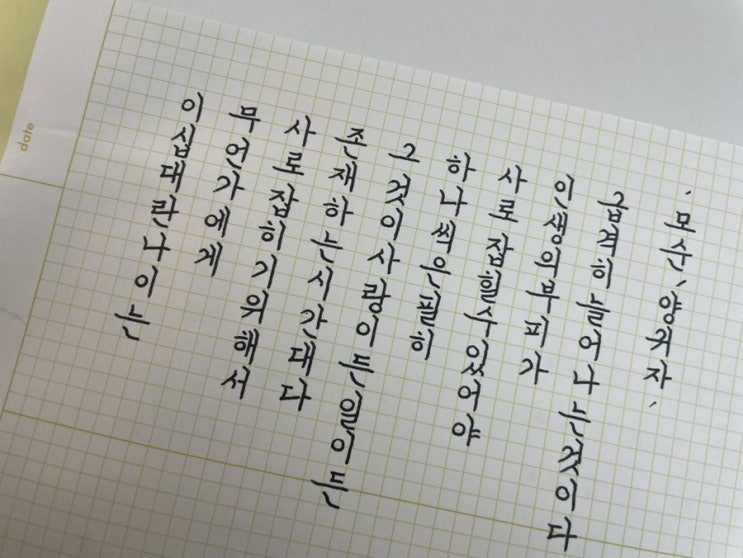 date
이십대란 나이는
무언가에게
사로잡히기 위해서
존재하는 시간대다
그것이 사랑이든 일이든
하나씩은 필히
사로잡힐 수 있어야
인생의 부피가
급격히 늘어나는 것이다
'모순, 양귀자'